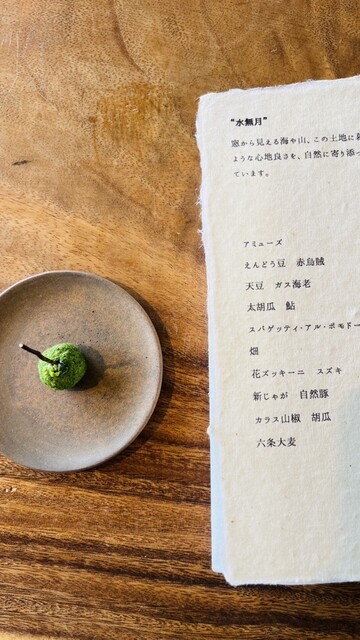 "水無月"
窓から見える海や山、この土地に
ような心地良さを、自然に寄り添っ
ています。
アミューズ
えんどう豆　赤烏賊
天豆　ガス海老
太胡瓜　鮎
スパゲッティ・アル・ポモドー
畑
花ズッキーニ　スズキ
新じゃが　自然豚
カラス山椒　胡瓜
六条大麦